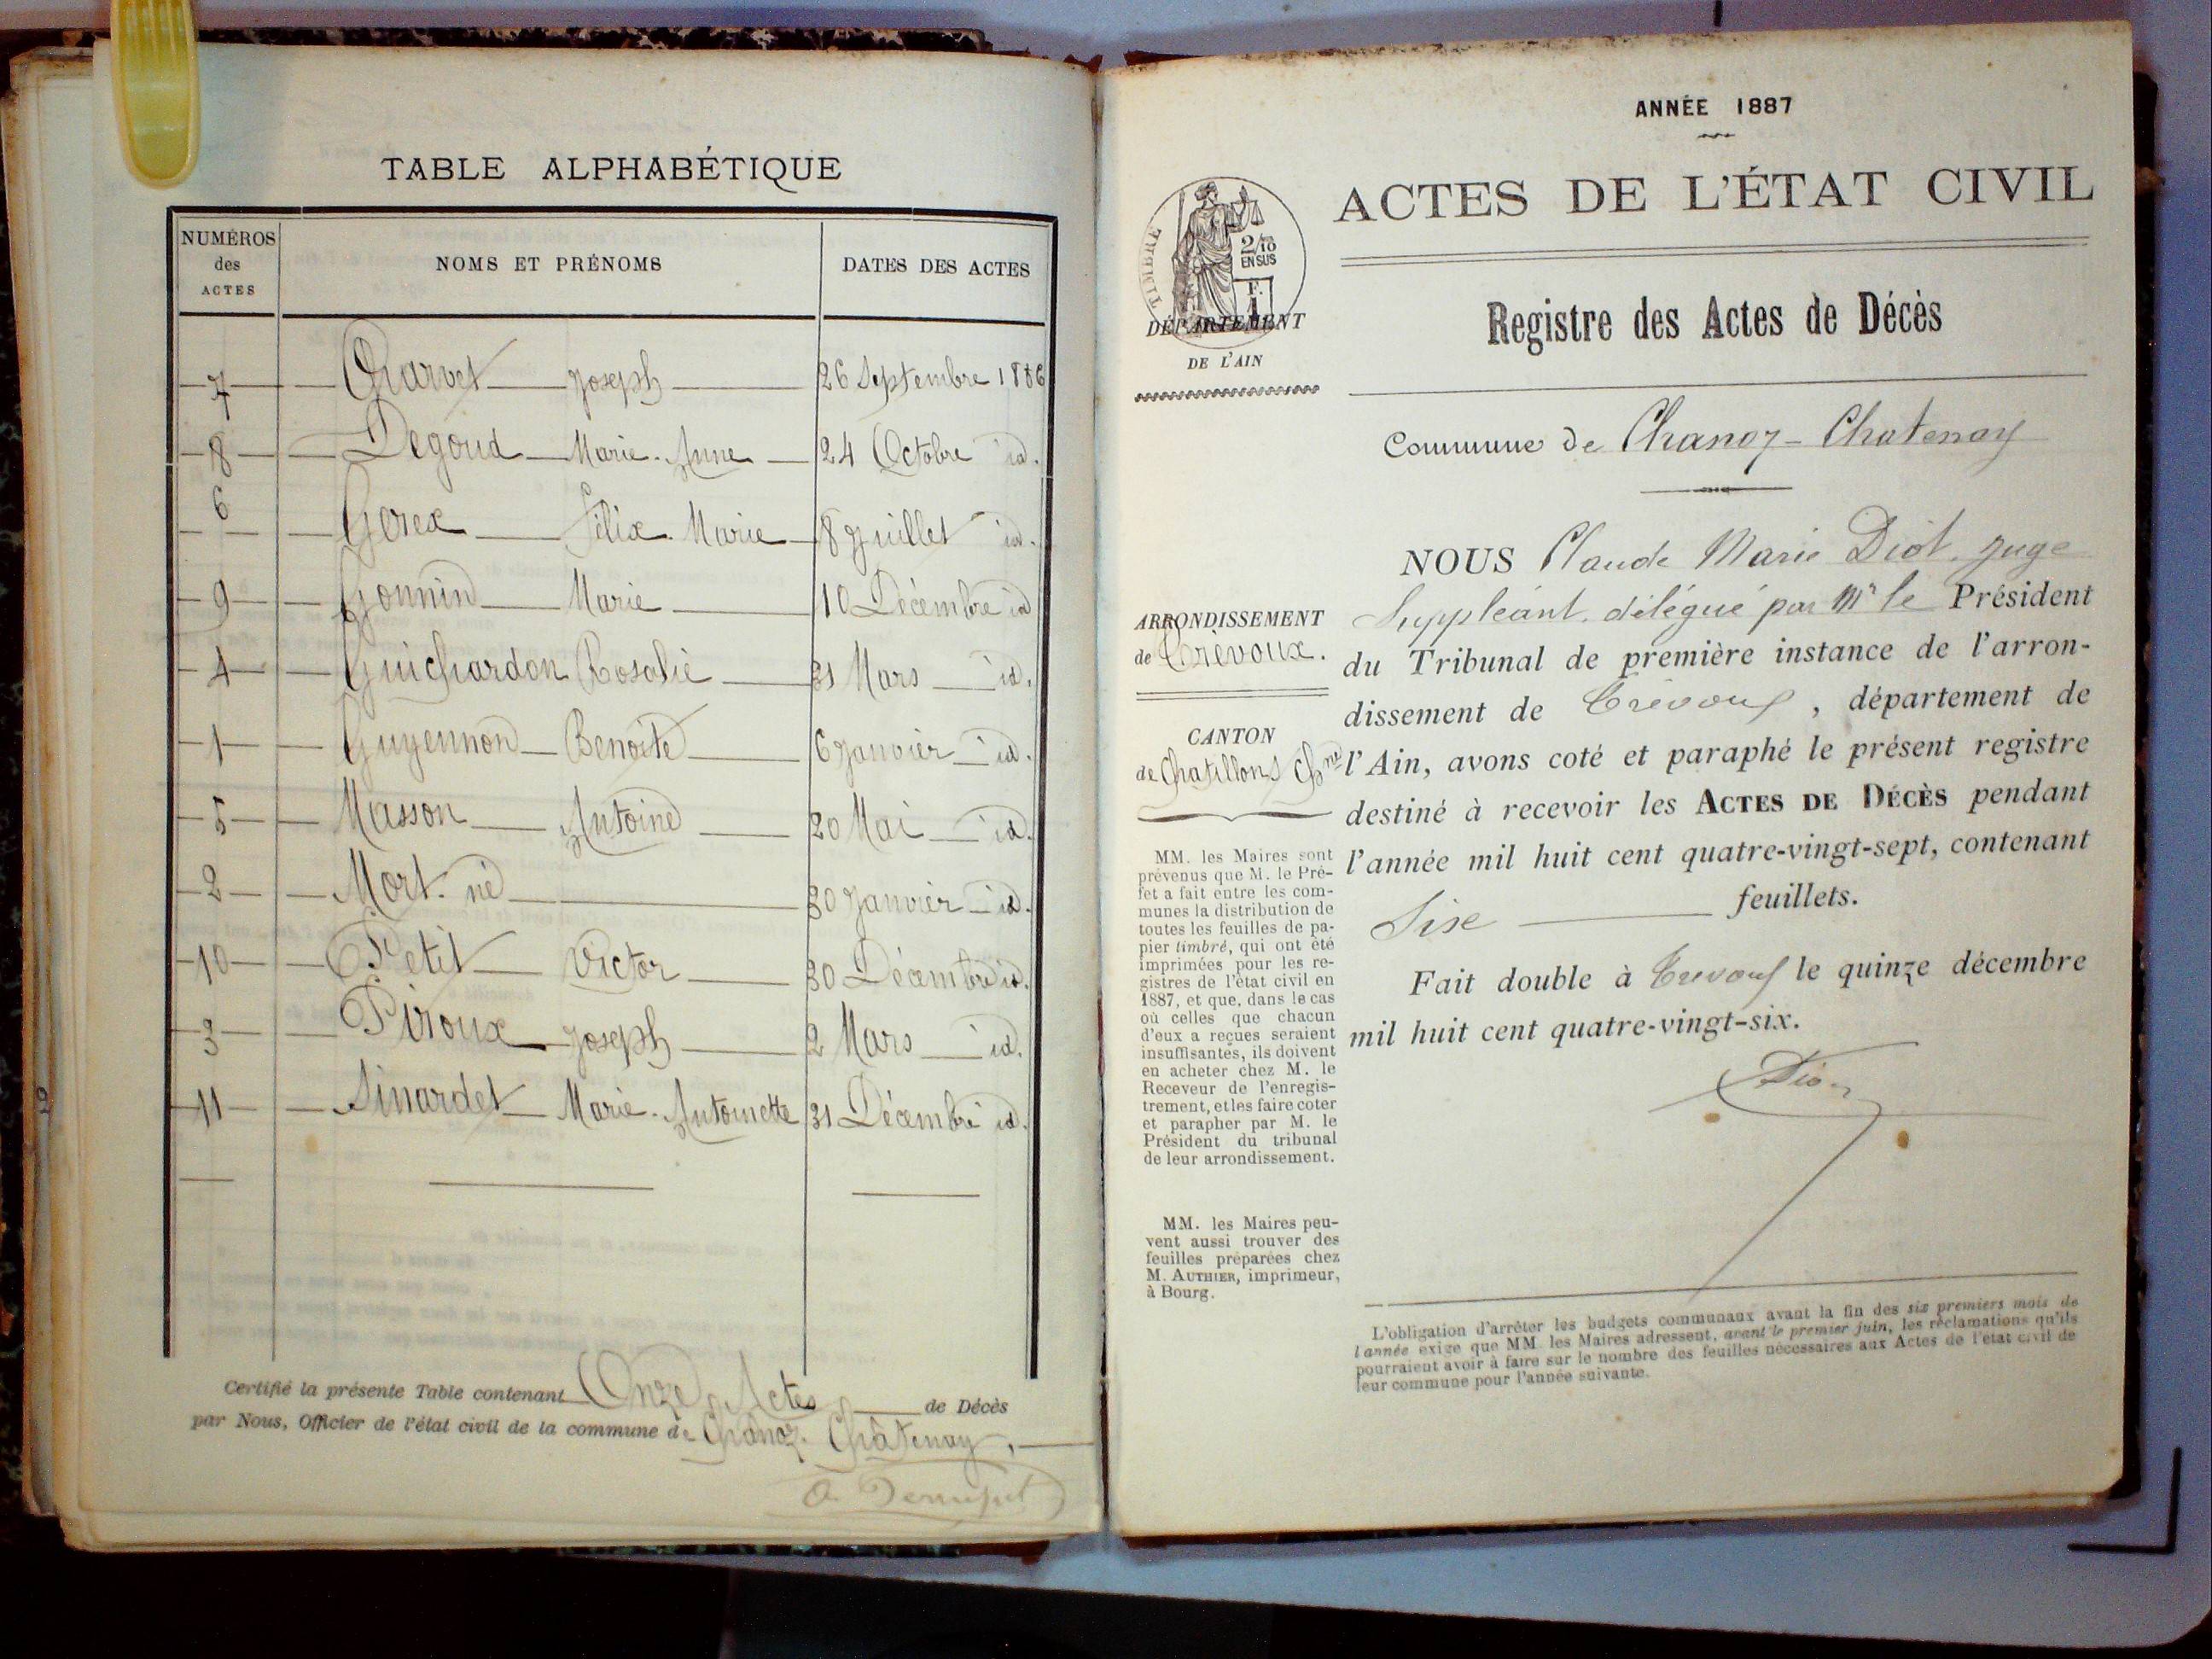 TABLE ALPHABÉTIQUE
NUMÉROS des ACTES NOMS ET PRÉNOMS DATES DES ACTES
7 Charvet Joseph 26 Septembre 1886
8 Degoud Marie-Anne 24 Octobre id.
6 Gerex Félix Marie 8 Juillet id.
9 Gonnin Marie 10 Décembre id
4 Guichardon Rosalie 31 Mars id.
1 Guyennon Benoite 6 Janvier id.
5 Masson Antoine 20 Mai id.
2 Mort-né 30 Janvier id.
10 Petit Victor 30 Décembre id.
3 Piroux Joseph 2 Mars id.
11 Sinardet Marie-Antoinette 31 Décembre id.
Certifié la présente Table contenant Onze Actes de Décès
par Nous, Officier de l'état civil de la commune de Chanoz-Châtenay.
ANNÉE 1887
ACTES DE L'ÉTAT CIVIL
TIMBRE
2/10
EN SUS
F.
1
DÉPARTEMENT
DE L'AIN
Registre des Actes de Décès
Commune de Chanoz-Chatenay
ARRONDISSEMENT
de Trévoux.
CANTON
de Chatillon s/ Ch^ne
MM. les Maires sont
prévenus que M. le Pré-
fet a fait entre les com-
munes la distribution de
toutes les feuilles de pa-
pier timbré, qui ont été
imprimées pour les re-
gistres de l'état civil en
1887, et que, dans le cas
où celles que chacun
d'eux a reçues seraient
insuffisantes, ils doivent
en acheter chez M. le
Receveur de l'enregis-
trement, et les faire coter
et parapher par M. le
Président du tribunal
de leur arrondissement.
MM. les Maires peu-
vent aussi trouver des
feuilles préparées chez
M. AUTHIER, imprimeur,
à Bourg.
NOUS Claude Marie Diot, Juge
Suppléant, délégué par Mr le Président
du Tribunal de première instance de l'arron-
dissement de Trévoux, département de
l'Ain, avons coté et paraphé le présent registre
destiné à recevoir les ACTES DE DÉCÈS pendant
l'année mil huit cent quatre-vingt-sept, contenant
Six feuillets.
Fait double à Trévoux le quinze décembre
mil huit cent quatre-vingt-six.
L'obligation d'arrêter les budgets communaux avant la fin des six premiers mois de
l'année exige que MM. les Maires adressent, avant le premier juin, les réclamations qu'ils
pourraient avoir à faire sur le nombre des feuilles nécessaires aux Actes de l'état civil de
leur commune pour l'année suivante.